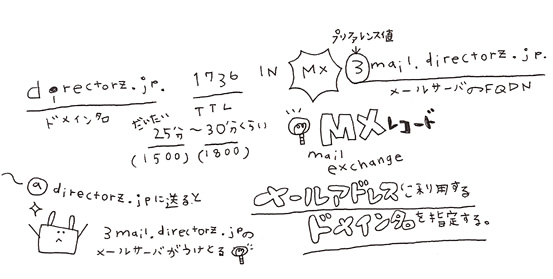 プリファレンス値
directorz.jp. 1736 IN MX 3 mail.directorz.jp.
ドメイン名 TTL メールサーバのFQDN
だいたい
25分〜30分くらい
(1500) (1800)
MXレコード
mail
exchange
@directorz.jpに送ると
3mail.directorz.jpの
メールサーバがうけとる
メールアドレスに利用する
ドメイン名を指定する。